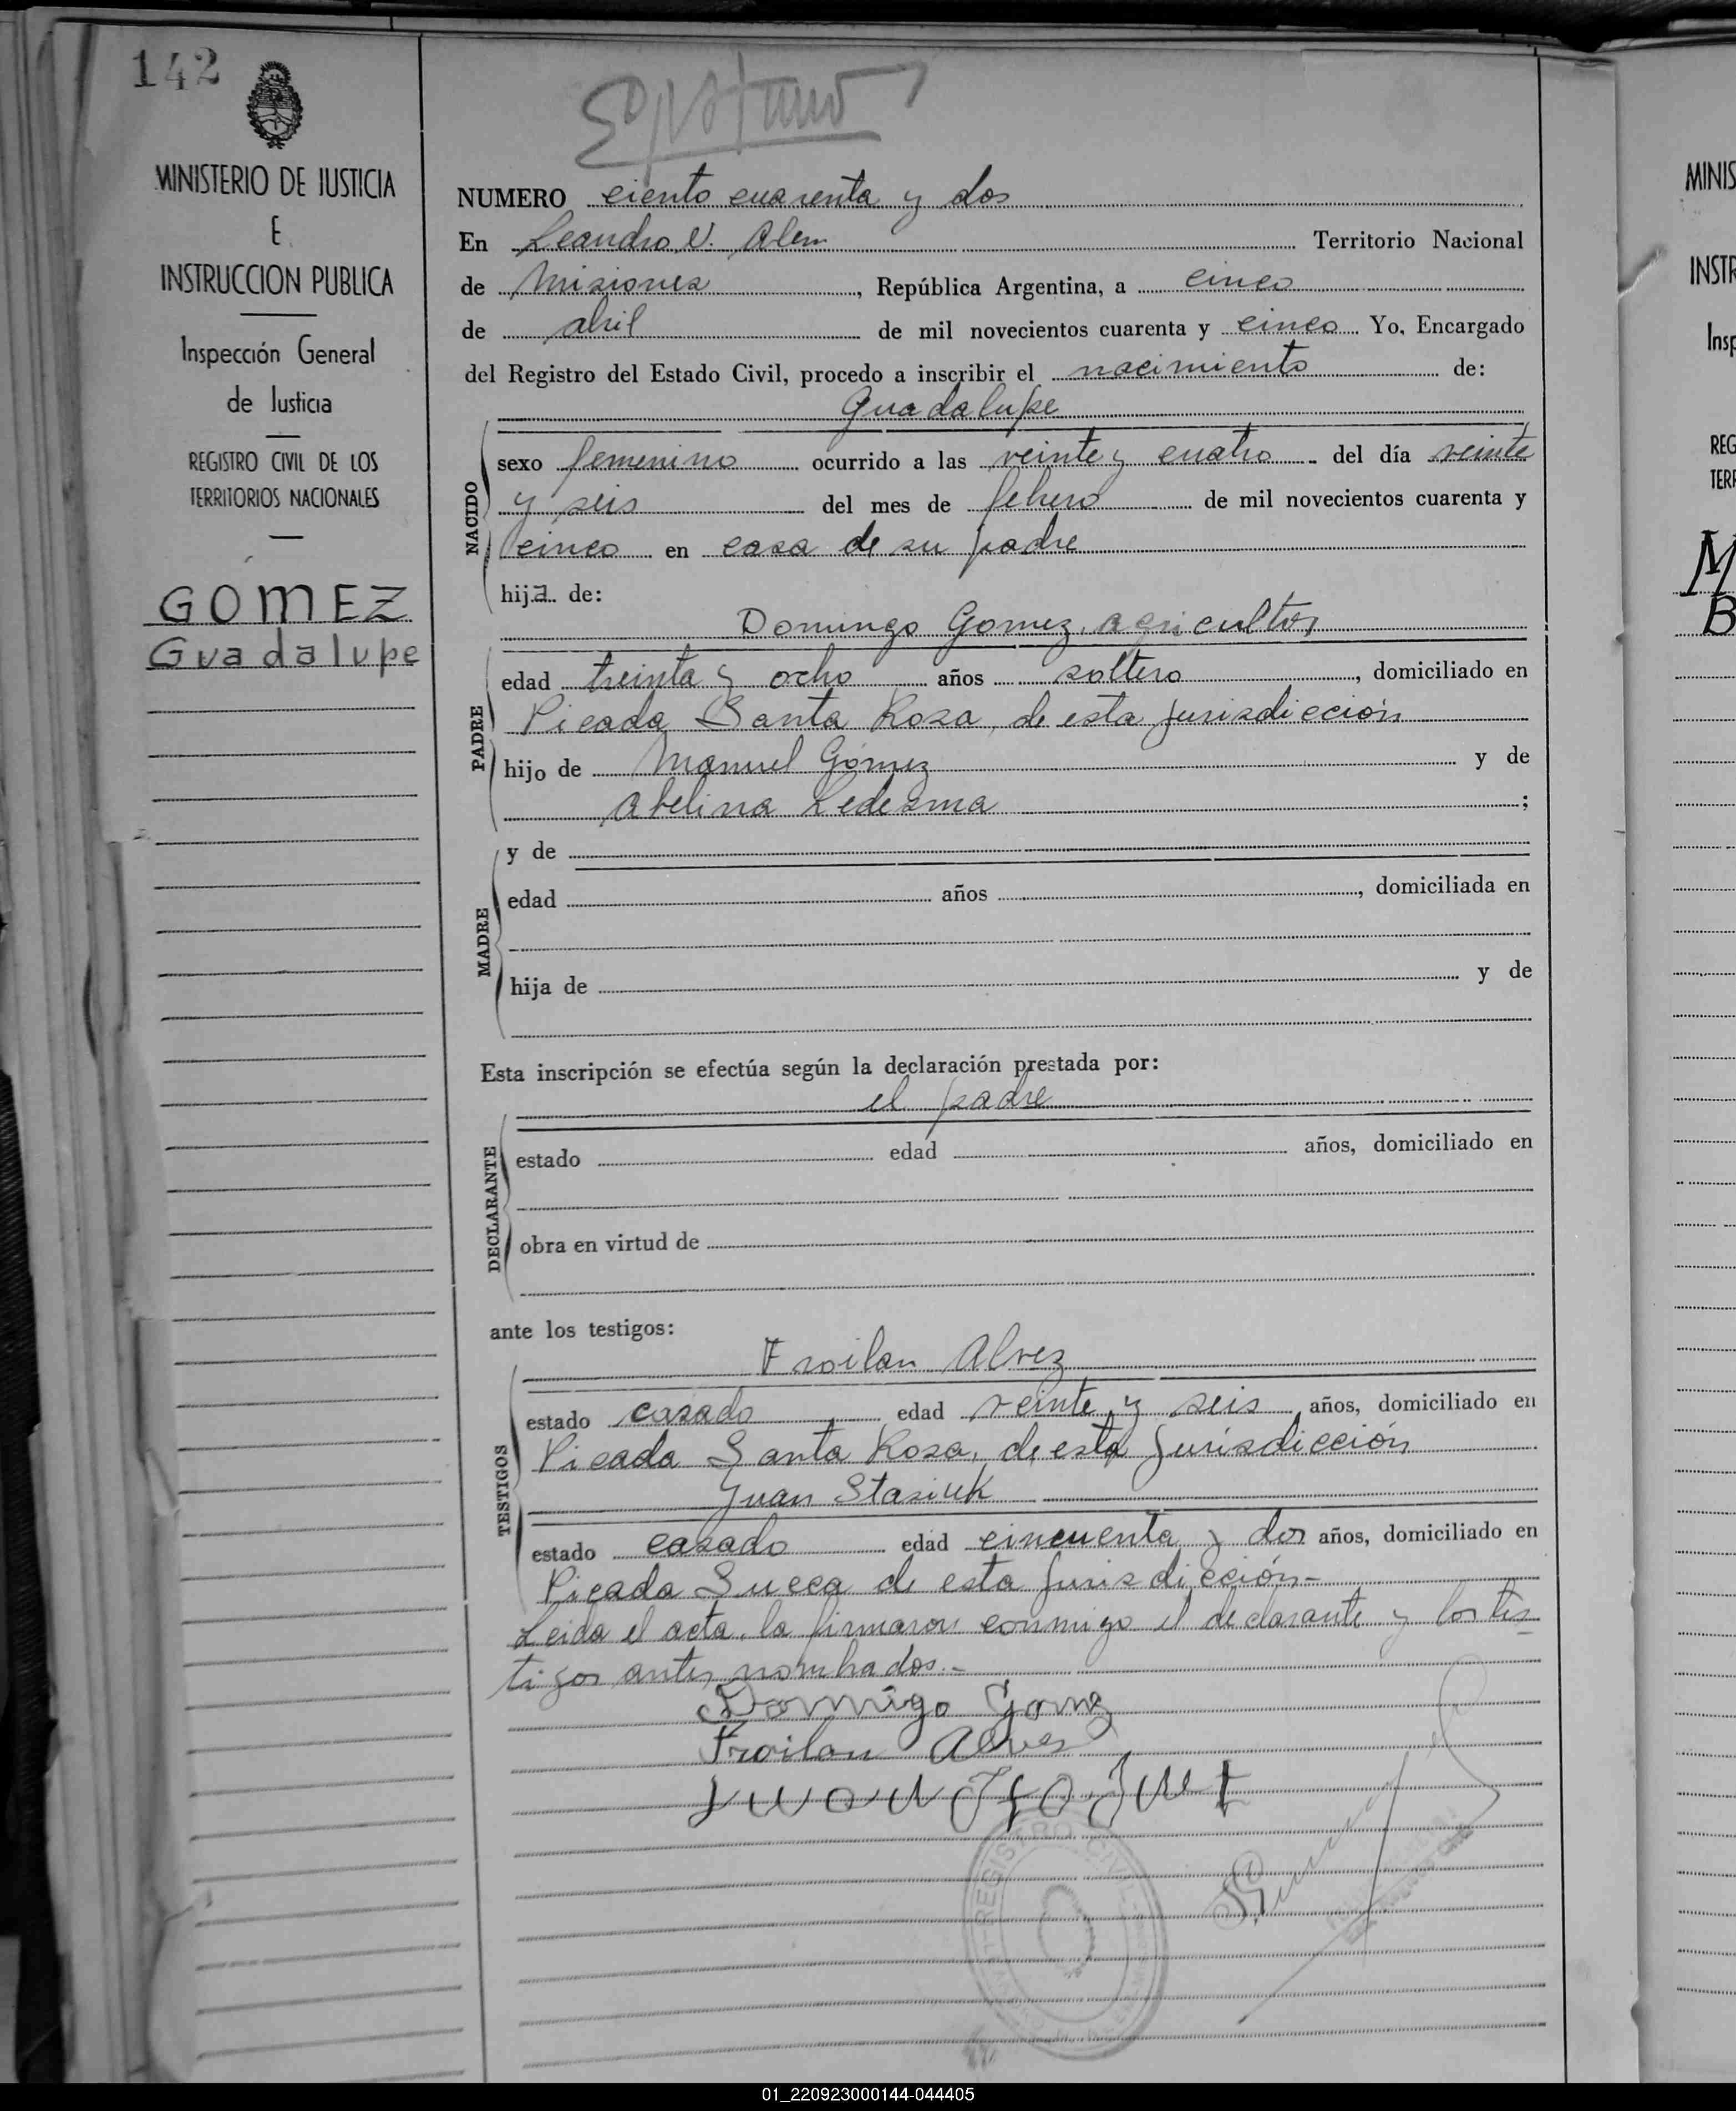 142
MINISTERIO DE JUSTICIA
E
INSTRUCCION PUBLICA
Inspección General
de Justicia
REGISTRO CIVIL DE LOS
TERRITORIOS NACIONALES
GOMEZ
Guadalupe
NUMERO ciento cuarenta y dos
En Leandro N. Alem Territorio Nacional
de Misiones, República Argentina, a cinco
de abril de mil novecientos cuarenta y cinco Yo, Encargado
del Registro del Estado Civil, procedo a inscribir el nacimiento de:
Guadalupe
NACIDO
sexo femenino ocurrido a las veinte y cuatro del día veinte
y seis del mes de febrero de mil novecientos cuarenta y
cinco en casa de su padre
hija de:
Domingo Gomez, agricultor
PADRE
edad treinta y ocho años soltero, domiciliado en
Picada Santa Rosa, de esta jurisdicción
hijo de Manuel Gómez y de
Abelina Ledesma ;
MADRE
y de
edad años , domiciliada en
hija de y de
Esta inscripción se efectúa según la declaración prestada por:
el padre
DECLARANTE
estado edad años, domiciliado en
obra en virtud de
ante los testigos:
Froilan Alvez
TESTIGOS
estado casado edad veinte y seis años, domiciliado en
Picada Santa Rosa, de esta jurisdicción
Juan Stasiuk
estado casado edad cincuenta y dos años, domiciliado en
Picada Sueca de esta jurisdicción-
Leida el acta, la firmaron conmigo el declarante y los tes
tigos antes nombrados.-
Domigo Gomz
Froilan Alves
REGISTRO CIVIL
MINIS
INSTR
Insp
REG
TERR
M
B
01_220923000144-044405